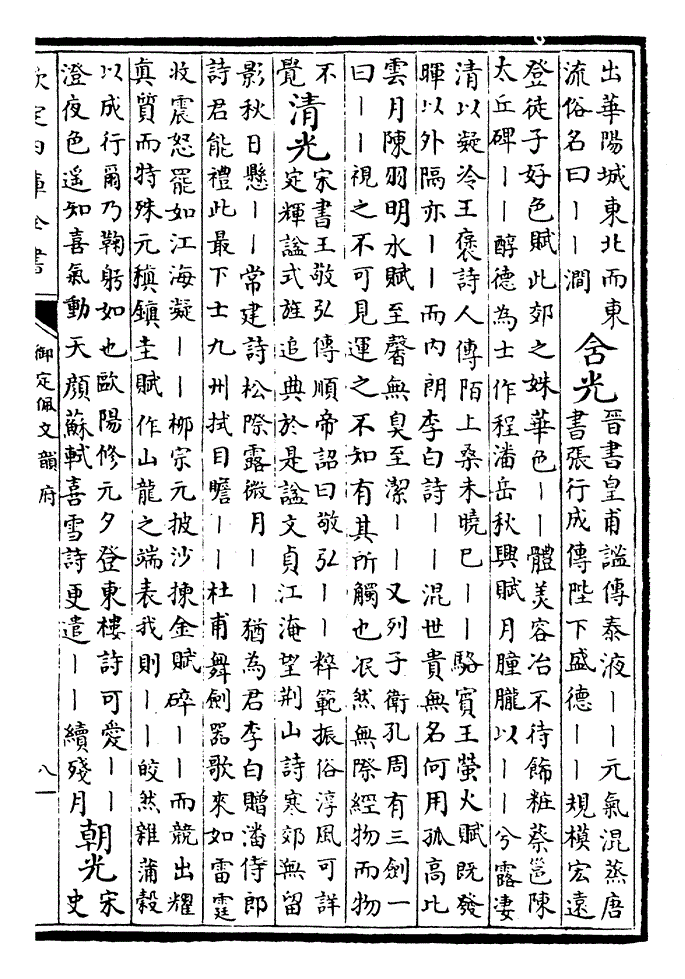 出華陽城東北而東
流俗名曰丨丨澗
含光
晉書皇甫謐傳泰液丨丨元氣混蒸唐
書張行成傳陛下盛德丨丨規模宏遠
登徒子好色賦此郊之姝華色丨丨體美容冶不待飾粧蔡邕陳
太丘碑丨丨醇德為士作程潘岳秋興賦月朣朧以丨丨兮露凄
清以凝冷王褒詩人傳陌上桑未曉已丨丨駱賓王螢火賦既發
暉以外隔亦丨丨而内朗李白詩丨丨混世貴無名何用孤高比
雲月陳羽明水賦至馨無臭至潔丨丨又列子衛孔周有三劍一
曰丨丨視之不可見運之不知有其所觸也泯然無際經物而物
不
覺
清光
宋書王敬弘傳順帝詔曰敬弘丨丨粹範振俗淳風可詳
定輝謚式旌追典於是謚文貞江淹望荆山詩寒郊無留
影秋日懸丨丨常建詩松際露微月丨丨猶為君李白贈潘侍郎
詩君能禮此最下士九州拭目瞻丨丨杜甫舞劍器歌來如雷霆
收震怒罷如江海凝丨丨柳宗元披沙揀金賦碎丨丨而競出耀
真質而特殊元稹鎮圭賦作山龍之端表我則丨丨皎然雜蒲穀
以成行爾乃鞠躬如也歐陽修元夕登東樓詩可愛丨丨
澄夜色遥知喜氣動天顔蘇軾喜雪詩更遣丨丨續殘月
朝光
宋
史
欽定四庫全書
御定佩文韻府
八